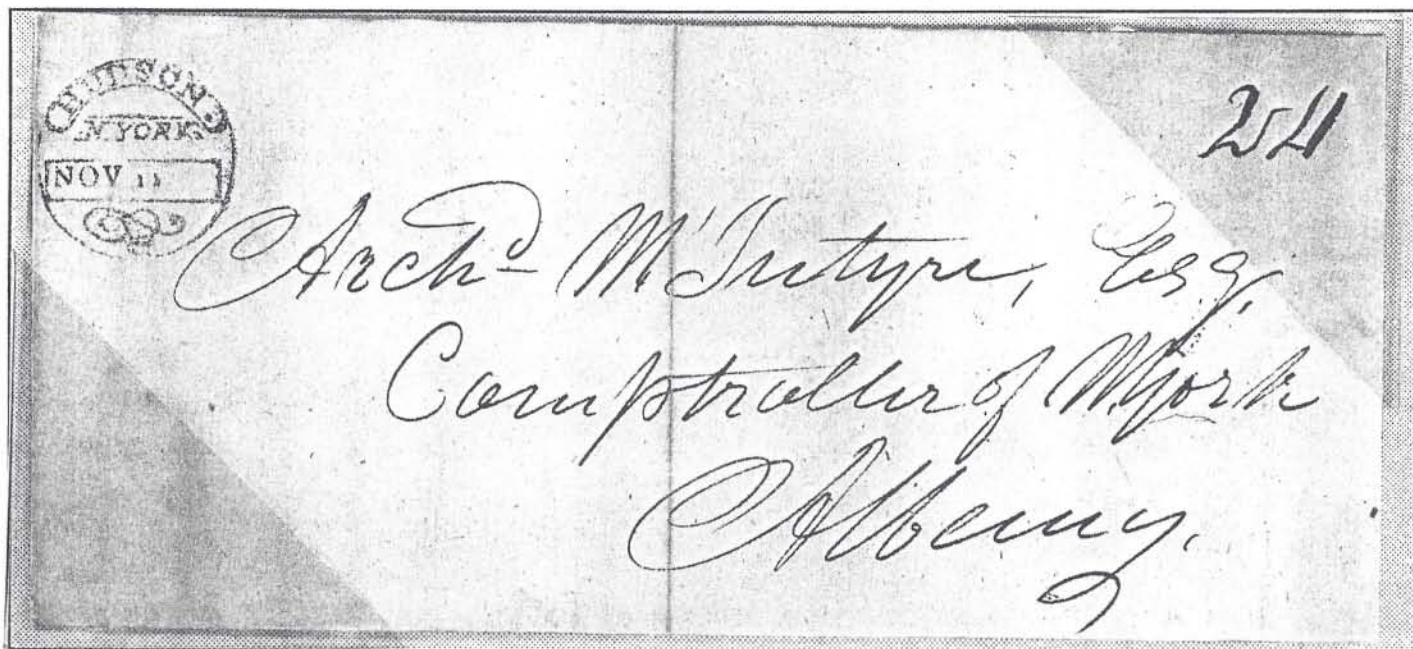 HUDSON
N.YORK.
NOV 11
Archd M'Intyre, Esq.
Comptroller of N.york
Albany.